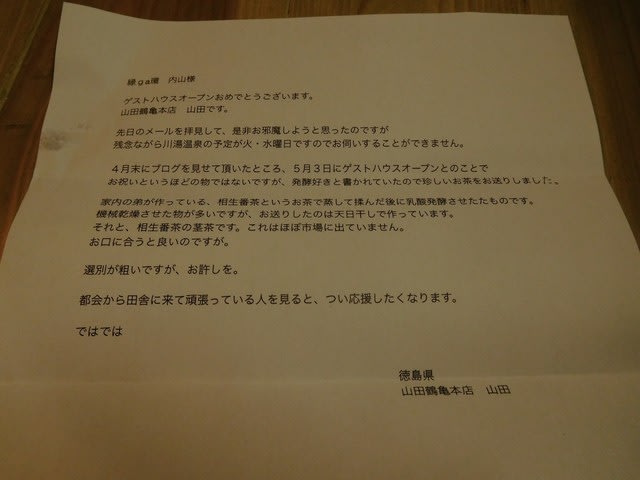 緑ga環　内山様
ゲストハウスオープンおめでとうございます。
山田鶴亀本店　山田です。
先日のメールを拝見して、是非お邪魔しようと思ったのですが
残念ながら川湯温泉の予定が火・水曜日ですのでお伺いすることができません。
４月末にブログを見せて頂いたところ、５月３日にゲストハウスオープンとのことで
お祝いというほどの物ではないですが、発酵好きと書かれていたので珍しいお茶をお送りしました。
家内の弟が作っている、相生番茶というお茶で蒸して揉んだ後に乳酸発酵させたたものです。
機械乾燥させた物が多いですが、お送りしたのは天日干しで作っています。
それと、相生番茶の茎茶です。これはほぼ市場に出ていません。
お口に合うと良いのですが。
選別が粗いですが、お許しを。
都会から田舎に来て頑張っている人を見ると、つい応援したくなります。
ではでは
徳島県
山田鶴亀本店　山田